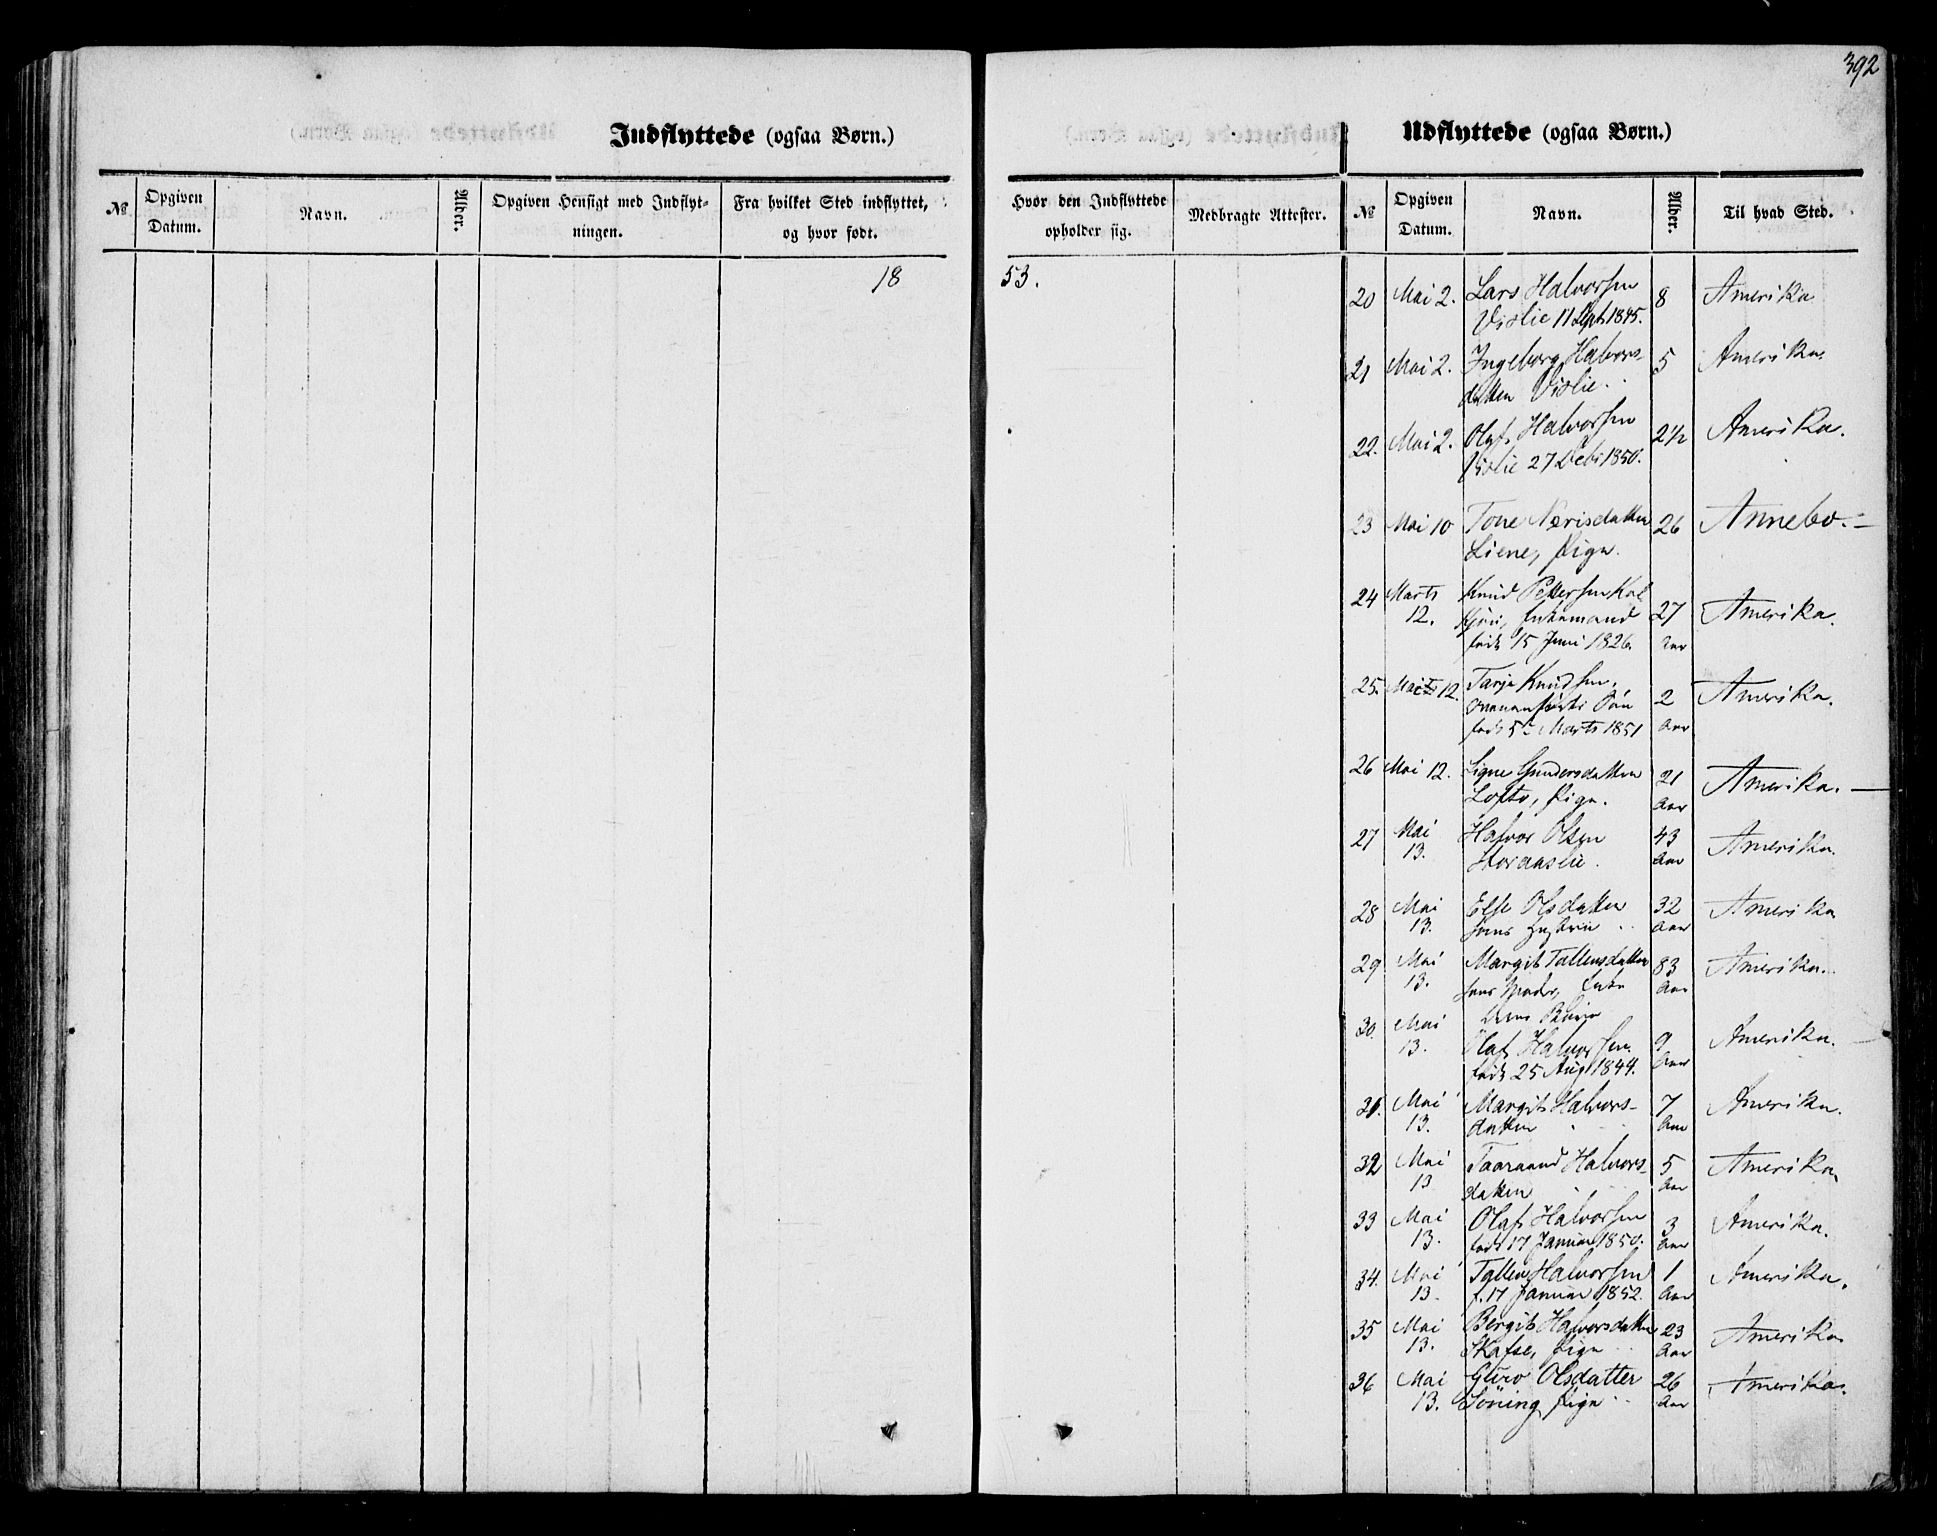 392
Indflyttede (ogsaa Børn.)
№ Opgiven Datum. Navn. Alder. Opgiven Hensigt med Indflyt-
ningen. Fra hvilket Sted indflyttet,
og hvor født.
18
Udflyttede (ogsaa Børn.)
Hvor den Indflyttede
opholder sig. Medbragte Attester. № Opgiven Datum. Navn. Alder. Til hvad Sted.
53.
20 Mai 2. Lars Halvorsen 8 Amerika
Vislie 11 Sept 1845.
21 Mai 2. Ingeborg Halvors- 5 Amerika.
datter Vislie.
22. Mai 2. Olaf Halvorsen 2½ Amerika.
Vislie 27 Debr 1850.
23 Mai 10 Tone Nerisdatter 26 Annebo.
Liene, Pige.
24 Marts Knud Pettersen
12. Enkemand 27 Amerika.
født 15 Juni 1826. Aar
25. 12. Tarje Knudsen, 2 Amerika.
Søn
født 5te Marts 1851 Aar
26 Mai 12. Signe Gundersdatter 21 Amerika.
Lofto, Pige. Aar
27 Mai Halvor Olsen 43 Amerika.
13. Storaaslie. Aar
28 Mai Else Olsdatter 32 Amerika
13. hans Hustru Aar
29 Mai Margit Tallevsdatter 83 Amerika.
13. hans Moder, Enke Aar
deres Børn
30. Mai Olaf Halvorsen 9 Amerika.
13. født 25 Aug 1844. Aar
31. Mai Margit Halvors- 7 Amerika.
13. datter Aar
32 Mai Taaraand Halvors- 5 Amerika.
13 datter Aar
33 Mai Olaf Halvorsen 3 Amerika.
13. født 17 Januar 1850. Aar
34. Mai Tallev Halvorsen 1 Amerika.
13. f. 17 Januar 1852. Aar
35 Mai Bergit Halvorsdatter 23 Amerika
13. Skafse, Pige Aar
36 Mai Guro Olsdatter 26 Amerika.
13. Pige Aar